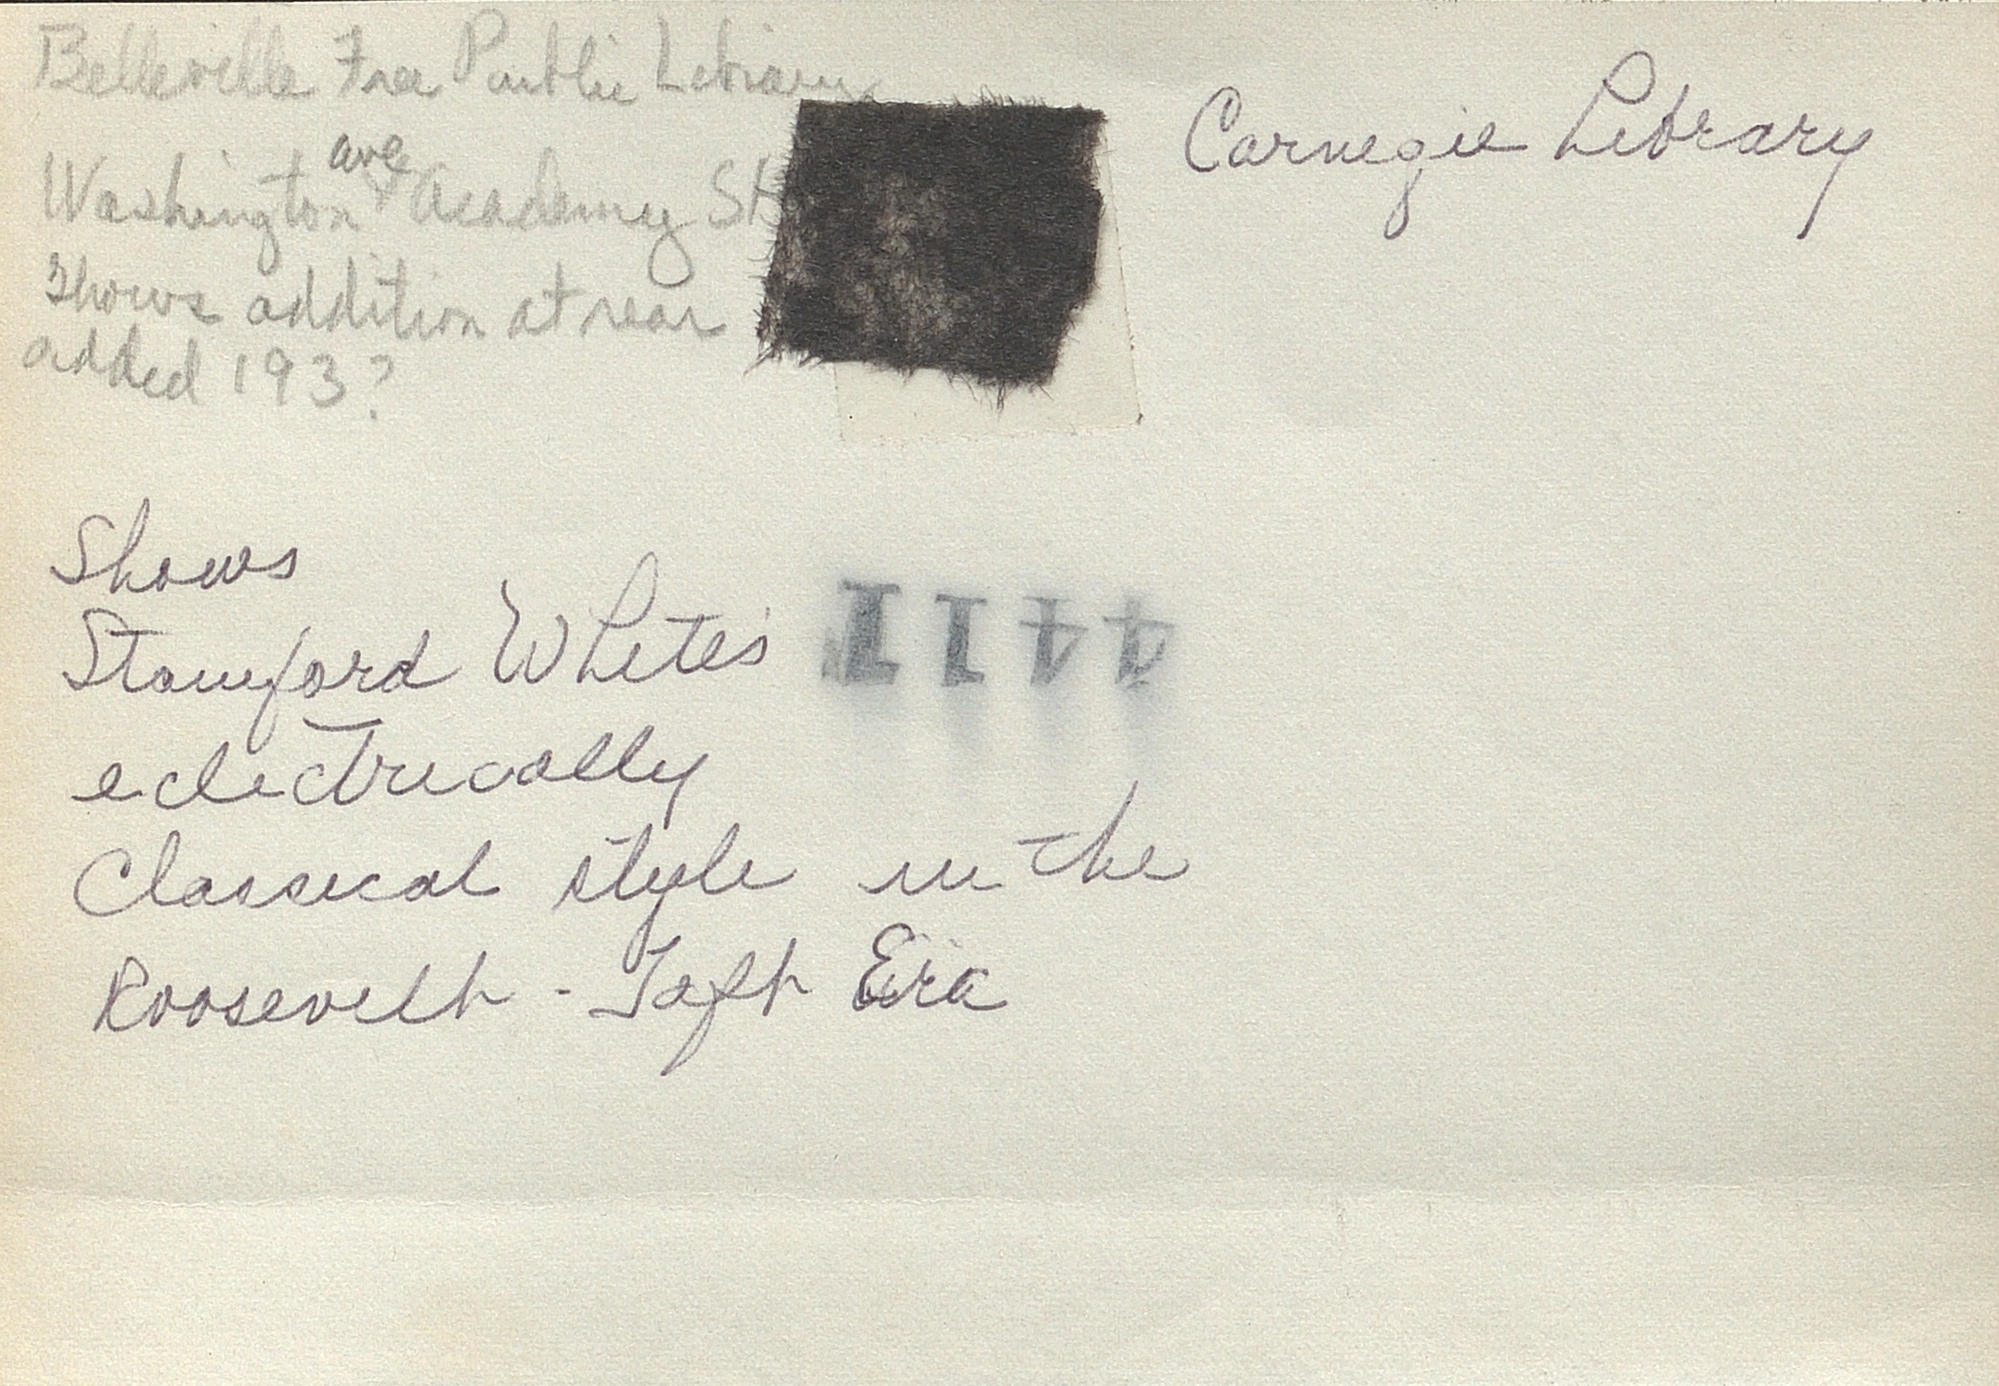 Belleville Free Public Library
Washington ave & Academy St
Shows addition at rear
added 193?
Carnegie Library
Shows
Stamford White's
eclectrically
Classical style in the
Roosevelt - Taft Era